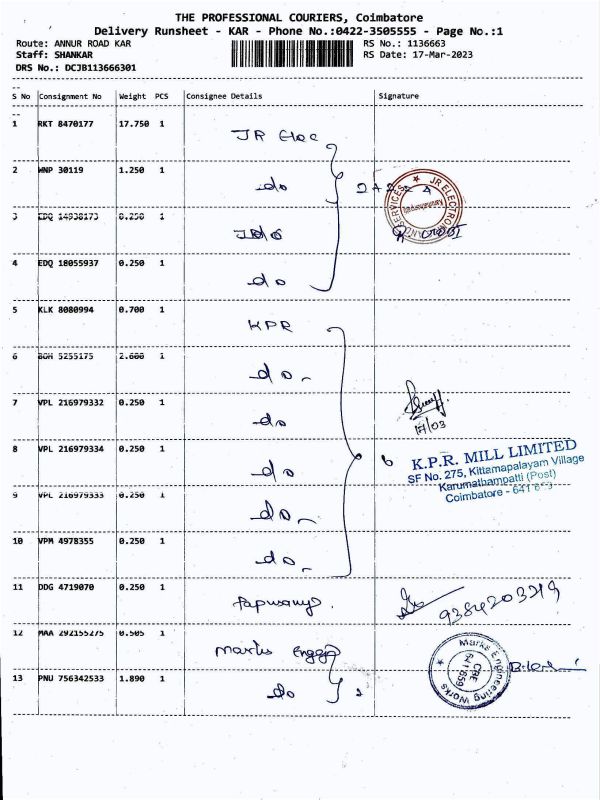 THE PROFESSIONAL COURIERS, Coimbatore
Delivery Runsheet - KAR - Phone No.:0422-3505555 - Page No.:1
Route: ANNUR ROAD KAR RS No.: 1136663
Staff: SHANKAR RS Date: 17-Mar-2023
DRS No.: DCJB113666301
S No Consignment No Weight PCS Consignee Details Signature
1 RKT 8470177 17.750 1 JR Elec
2 WNP 30119 1.250 1 do
3 EDQ 14938173 0.250 1
4 EDQ 18055937 0.250 1 do
JR ELECTRON SERVICES
5 KLK 8080994 0.700 1 KPR
6 BGH 5255175 2.600 1 do
7 VPL 216979332 0.250 1 do
17/03
8 VPL 216979334 0.250 1 do 6
K.P.R. MILL LIMITED
SF No. 275, Kittampalayam Village
Karumathampatti (Post)
Coimbatore - 641
9 VPL 216979333 0.250 1 do
10 VPM 4978355 0.250 1 do
11 DDG 4719070 0.250 1 9384203219
12 MAA 292155275 0.505 1 Marks Engg
13 PNU 756342533 1.890 1 do 2
Marks Engineering Works
CBE
641659